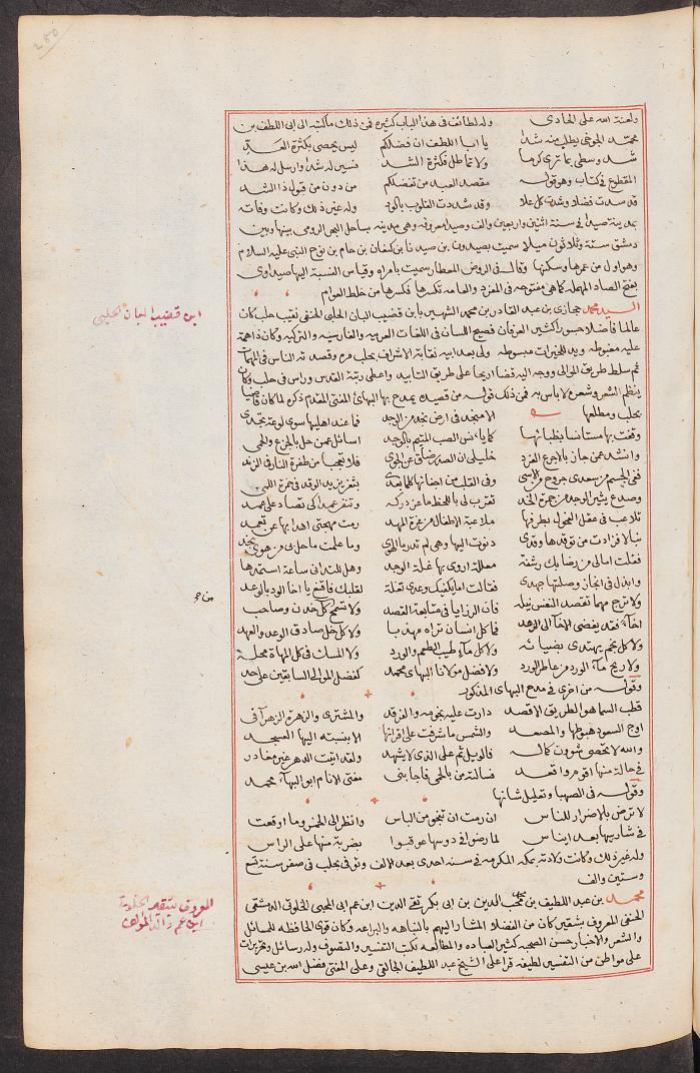 250
ولعنة الله على الحادي وله لطائف في هذا الباب كثيرة فمن ذلك ما كتبه الى ابي اللطيف بن
محمد الجوخي يطلب منه شدا يا ابا اللطف ان فضلكم ليس يحصى بكثرة العد
شد وسطى بما ترى كرما ولا تماطل فكثرة الشد فسير له شدا وارسل له هذا
المقطوع في كتاب وهو قوله مقصد العبد من تفضلكم من دون من قبول ذا الشد
قد سدت فضلا وشدت كل علا وقد شددت القلوب بالود وله غير ذلك وكانت وفاته
بمدينة صيدا في سنة اثنين واربعين والف وصيدا معروفه وهي مدينه بساحل البحر الرومي بينها وبين
دمشق ستة وثلاثون ميلا سميت بصيدون بن صيدنا بن كنعان بن حام بن نوح النبي عليه السلام
وهو اول من عمرها وسكنها وقال في الروض المعطار سميت بامراه وقياس النسبة اليها صيداوي
بفتح الصاد المهمله كما هي مفتوحه في المفرد والعامه تكسرها فكسرها من خلط العوام
ابن قضيب البان الحلبي
السيد محمد حجازي بن عبد القادر بن محمد الشهير بابن قضيب البان الحلبي الحنفي نقيب حلب كان
عالما فاضلا جسورا كثير العرفان فصيح اللسان في اللغات العربيه والفارسيه والتركيه وكان ذا همة
عليه مضبوطه ويد للخيرات مبسوطه ولي بعد ابيه نقابة الاشراف بحلب مره وقصد ته الناس في المهمات
ثم سلك طريق الموالي ووجه اليه قضا اريحا على طريق التابيد واعطى رتبة القدس وراس في حلب وكان
ينظم الشعر وشعره لا باس به فمن ذلك قوله من قصيده يمدح بها البهائي المفتي المقدم ذكره لما كان قاضيا
بحلب ومطلعها الا منجد في ارض نجد من الوجد فما عند اهليها سوى لوعة تجدي
وقفت بها مستانسا بظبائها كما يانس الصب المتيم بالوجد اسائل عمن حل بالجزع والحمى
وانشد عمن جاز بالاجرع الفرد خليلي ان الصد ضاق عن الجوى فلا تعجبا من طفرة النار في الزند
ففي الجسم من سعدى جروح من الاسى وفي القلب من اجفانها كلما تعدى بثغر يزيد الوقد في جمرة اللمى
وصدغ يثير الوجد من جمرة الخد تقرب لي باللحظ ما عز دركه وتنفر عمدا كي تصاد على عمد
تلاعب في عقل الفحول بطرفها ملاعبة الاطفال من غرة المهد رمت مهجتي اهدابها عن تعمد
نبالا فزادت من توقدها وقدي دنوت اليها وهي لم تدر ما الهوى وما علمت ما حل بي من هوى نجد
فقلت امالي من رضابك رشفة معللة اروى بها غلة الوجد وهل للتداني ساعة استمدها
وابذل في انجاز وصلتها جهدي فقالت اما يكفيك وعدي تعلة لقلبك فاقنع يا اخا الود بالوعد
ولا ترج مهما تقصد النفس نيله فان الرزايا في متابعة القصد ولا تتهم كل خدن وصاحب
اخاء فقد يفضى الاخا الى الزهد فما كل انسان تراه مهذبا ولا كل خل صادق الوعد والعهد
ولا كل نجم يهتدى بضيائه ولا كل ماء طيب الطعم والورد ولا المسك في كل المهاة محله
ولا ريح ماء الورد من عاطر الورد ولا فضل مولانا البهاي محمد كفضل الموالي السابقين على حد
وقوله من اخرى في مدح البهاي المذكور
قطب السما هو الطريق الاقصد دارت عليه نجومه والفرقد والمشترى والزهرة الزهرا في
اوج السعود هبوطها والمصعد والشمس ما شرفت على اقرانها الا بنسبته اليها العسجد
والله لا تحصى شؤون كماله فالويل ثم على الذي لا يشهد ولقد اتيت الدهر غير مغادر
في حالة منها اقوم واقعد فسالته من بالحمى فاجابني مفتي الانام ابو البهاء محمد
وقوله في الصهبا وتعليل شانها
لا ترض بالاضرار للناس ان رمت ان تنجو من الباس وانظر الى الخمر وما اوقعت
في شاربيها بعد ايناس لما رضوا في دوسها عوقبوا بضربة منها على الراس
وله غير ذلك وكانت ولادته بمكه المكرمه في سنه احدى بعد الالف وتوفي بحلب في صفر سنة تسع
وستين والف
المعروف بشقير الخلوتي
ابن عم والد المؤلف
محمد بن عبد اللطيف بن محمد محب الدين بن ابي بكر تقي الدين ابن عم ابي المحبي الخلوتي الدمشقي
الحنفي المعروف بشقير كان من الفضلا المشار اليهم بالنباهه والبراعه وكان قوي الحافظه للمسائل
والشعر والاخبار حسن الصحبه كثير العباده والمطالعه لكتب التفسير والتصوف وله رسائل وتحريرات
على مواطن من التفسير لطيفه قرا على الشيخ عبد اللطيف الجالقي وعلى المفتي فضل الله بن عيسى